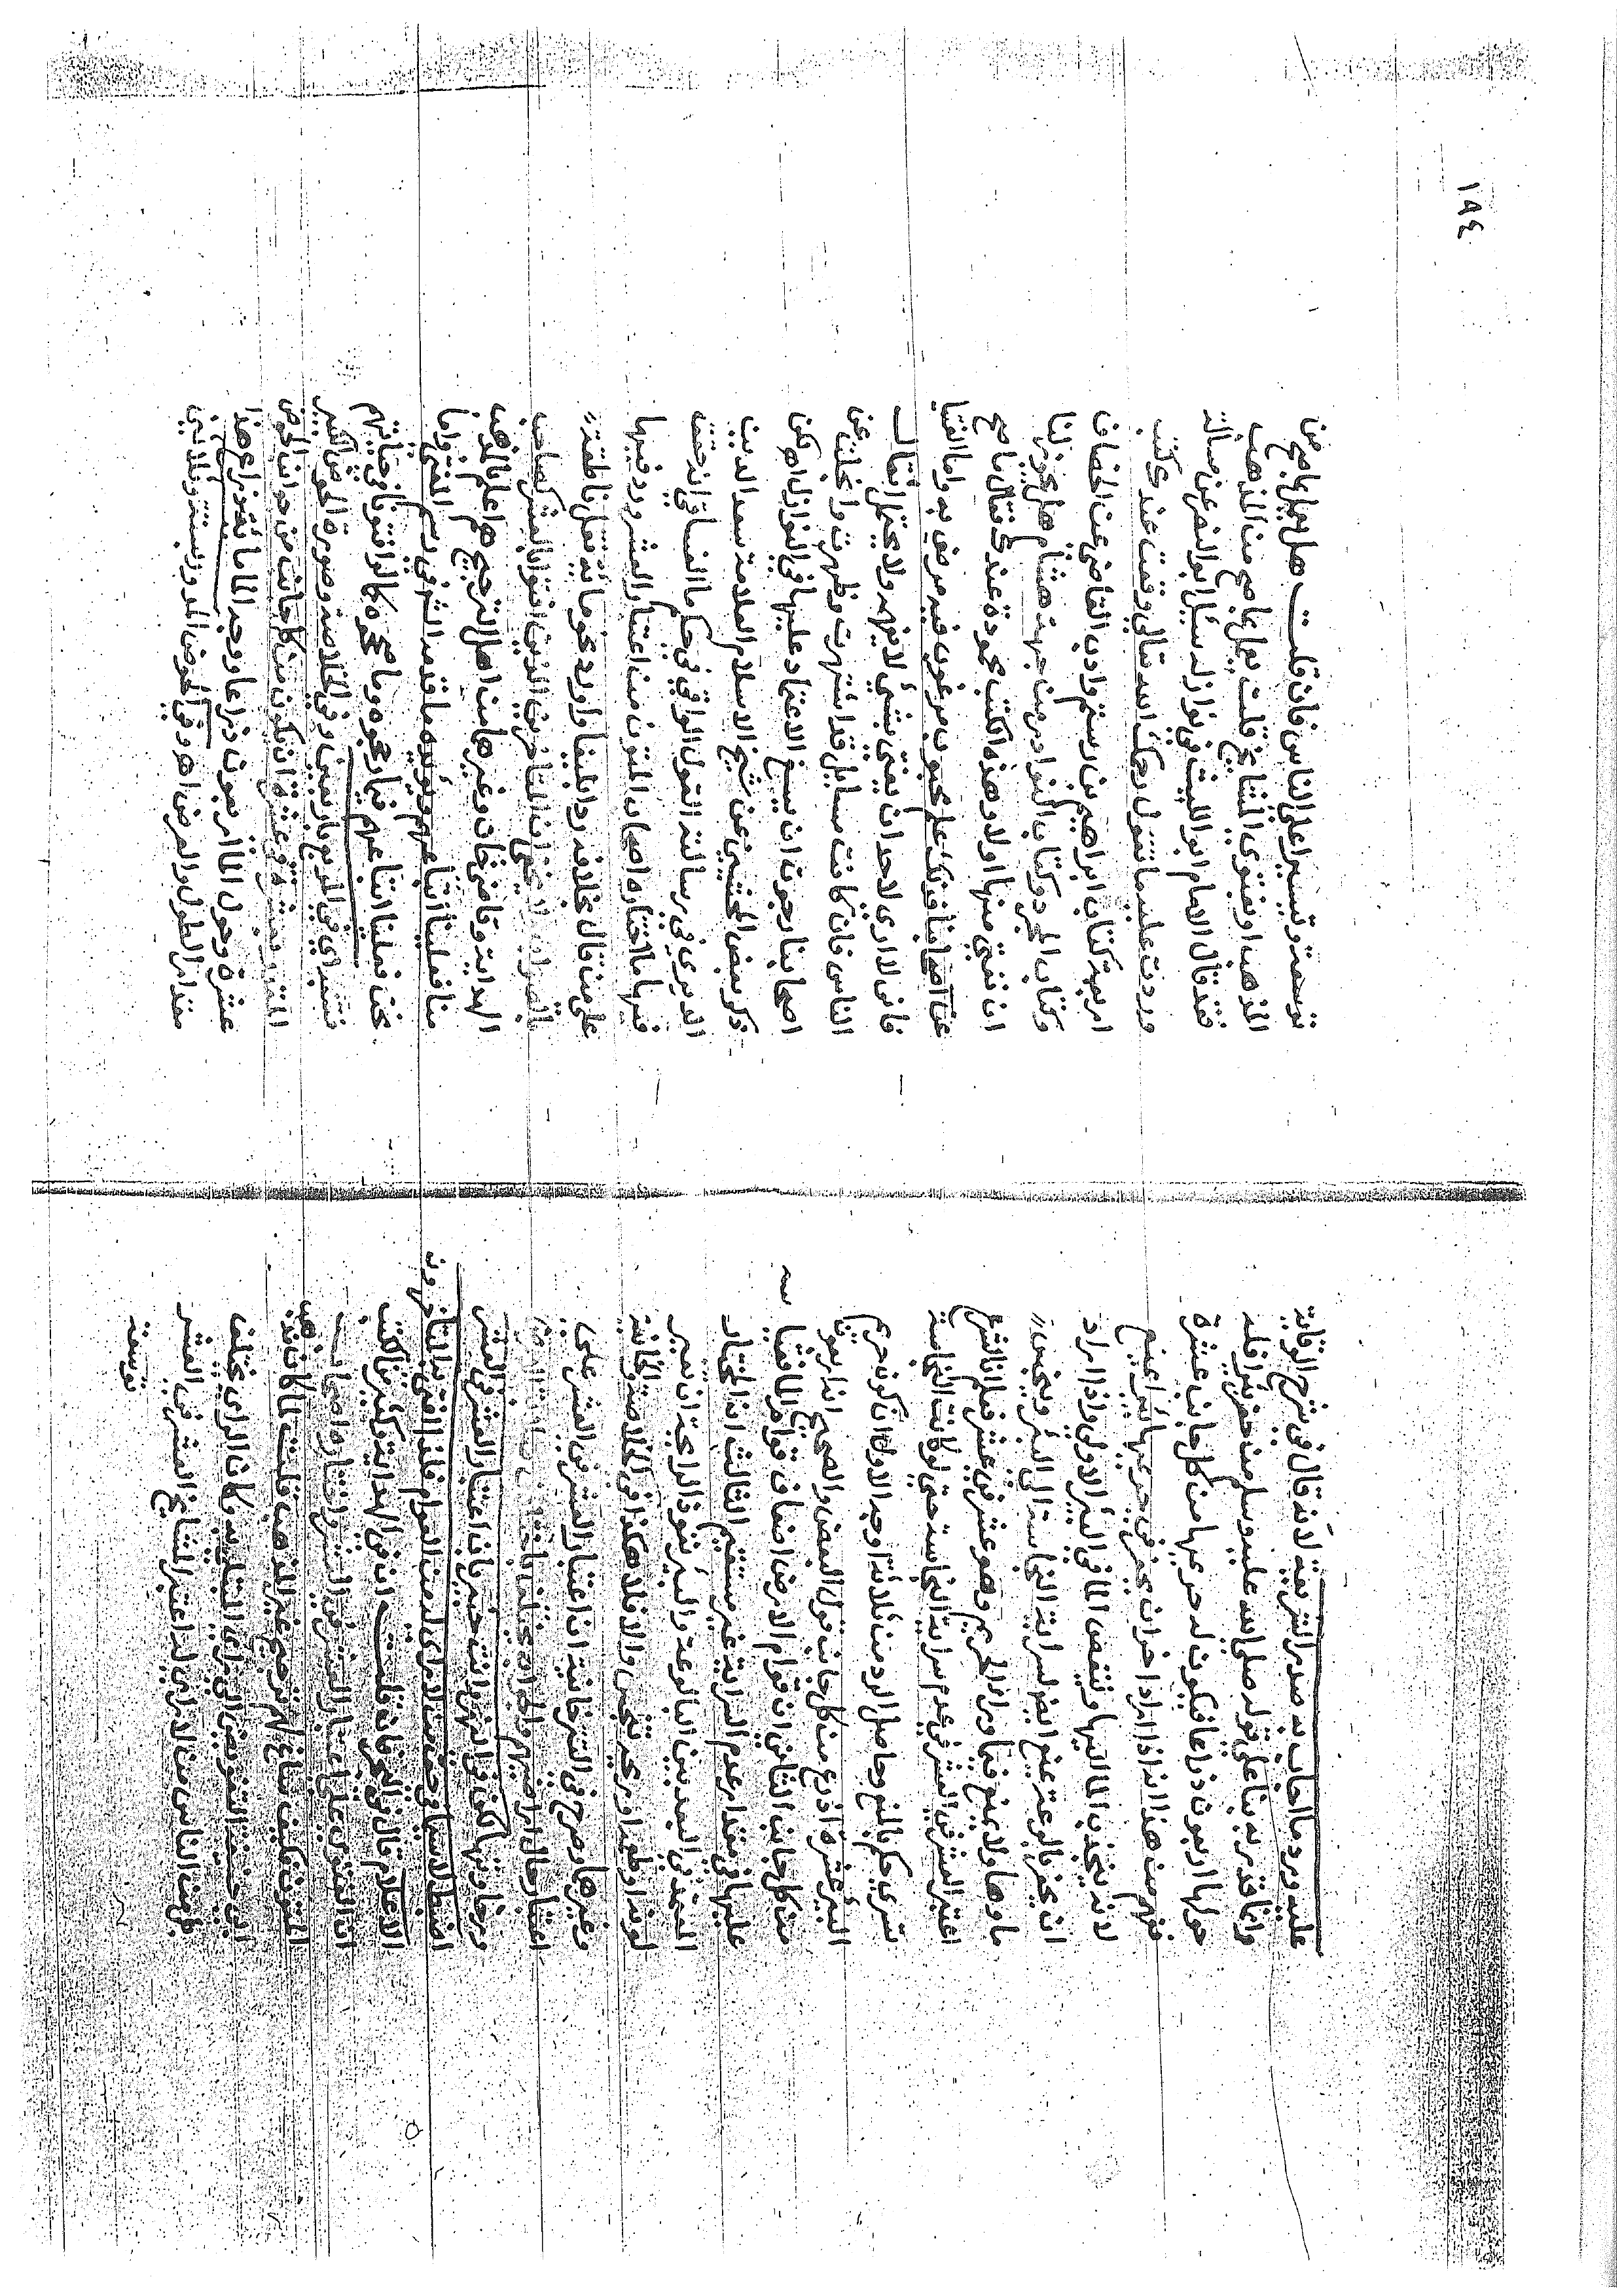 ١٨٤
عليه ويرد ما اجاب به صدر الشريعة لأنه قال في شرح الوقاية
وانما قدر به بناء على قوله صلى الله عليه وسلم من حفر بئرا فله
حولها اربعون ذراعا فيكون له حريمها من كل جانب عشرة
ففهم من هذا انه اذا اراد اخر ان يحفر في حريمها بئرا يمنع
لانه ينجذب الماء اليها وينقص الماء في البئر الاولى واذا اراد
ان يحفر بالوعة يمنع ايضا لسراية النجاسة الى البئر وينجس
ماؤها ولا يمنع فيما وراء الحريم وهو عشر في عشر فعلم ان الشرع
اعتبر العشر في العشر في عدم سراية النجاسة حتى لو كانت النجاسة
تسري يحكم بالمنع وحاصل الرد من ثلاثة اوجه الاول ان كون حريم
البئر عشرة اذرع من كل جانب قول البعض والصحيح انه اربعون
من كل جانب الثاني ان قوام الارض اضعاف قوام الماء فقياسه
عليها في مقدار عدم السراية غير مستقيم الثالث ان المختار
المعتمد في البعد بين البالوعة والبئر نفوذ الرائحة ان تغير
لونه او طعمه او ريحه تنجس والا فلا هكذا في الخلاصة والخانية
وغيرها وصرح في التترخانية ان اعتبار العشر في العشر على
اعتبار حال اراضيهم والجواب يختلف باختلاف
اضبط لا سيما في حق من لا راي له من العوام فلذا افتى به المتأخرون
الاعلام قال في البحر فان قلت ان في الهداية وكثير من الكتب
ان الفتوى على اعتبار العشر في العشر واختاره اصحاب
المتون فكيف ساغ لهم ترجيح غير المذهب قلت لما كان مذهب
ابي حنيفة التفويض الى راي المبتلى به وكان الراي يختلف
بل من الناس من لا راي له اعتبر المشايخ العشر في العشر
توسعة
توسعة وتيسيرا على الناس فان قلت هل يعمل بما صح من
المذهب او بفتوى المشايخ قلت يعمل بما صح من المذهب
فقد قال الامام ابو الليث في نوازله سئل ابو نصر عن مسالة
وردت عليه ما تقول رحمك الله تعالى وقعت عندك كتب
اربعة كتاب ابراهيم بن رستم وادب القاضي عن الخصاف
وكتاب المجرد وكتاب النوادر من جهة هشام هل يجوز لنا
ان نفتي منها اولا وهذه الكتب محمودة عندك فقال ما صح
عن اصحابنا فذلك علم محبوب مرغوب فيه مرضي به واما الفتيا
فاني لا ارى لاحد ان يفتي بشيء لا يفهمه ولا يحتمل اثقال
الناس فان كانت مسائل قد اشتهرت وظهرت وانجلت عن
اصحابنا رجوت ان يسع الاعتماد عليها في النوازل اه لكن
ذكر بعض المحشين عن شيخ الاسلام العلامة سعد الدين
الديري في رسالته القول الراقي في حكم ماء الفساقي انه حقق
فيها ما اختاره اصحاب المتون من اعتبار العشر ورد فيها
على من قال بخلافه ردا بليغا واورد نحو ماية نقل ناطقة
بالصواب لا يخفى ان المتأخرين الذين افتوا بالعشر كصاحب
الهداية وقاضي خان وغيرهما من اهل الترجيح هم اعلم بالمذهب
منا فعلينا اتباعهم ويؤيده ما قدمه الشم في رسم المفتي واما
نحن فعلينا اتباعهم فيما رجحوه وما صححوه كما لو افتونا في حياتهم
عشرة وحول الماء اربعون ذراعا ووجه الماء مائة ذراع هذا
مقدار الطول والعرض اه وفي الحوض المدور بستة وثلاثين